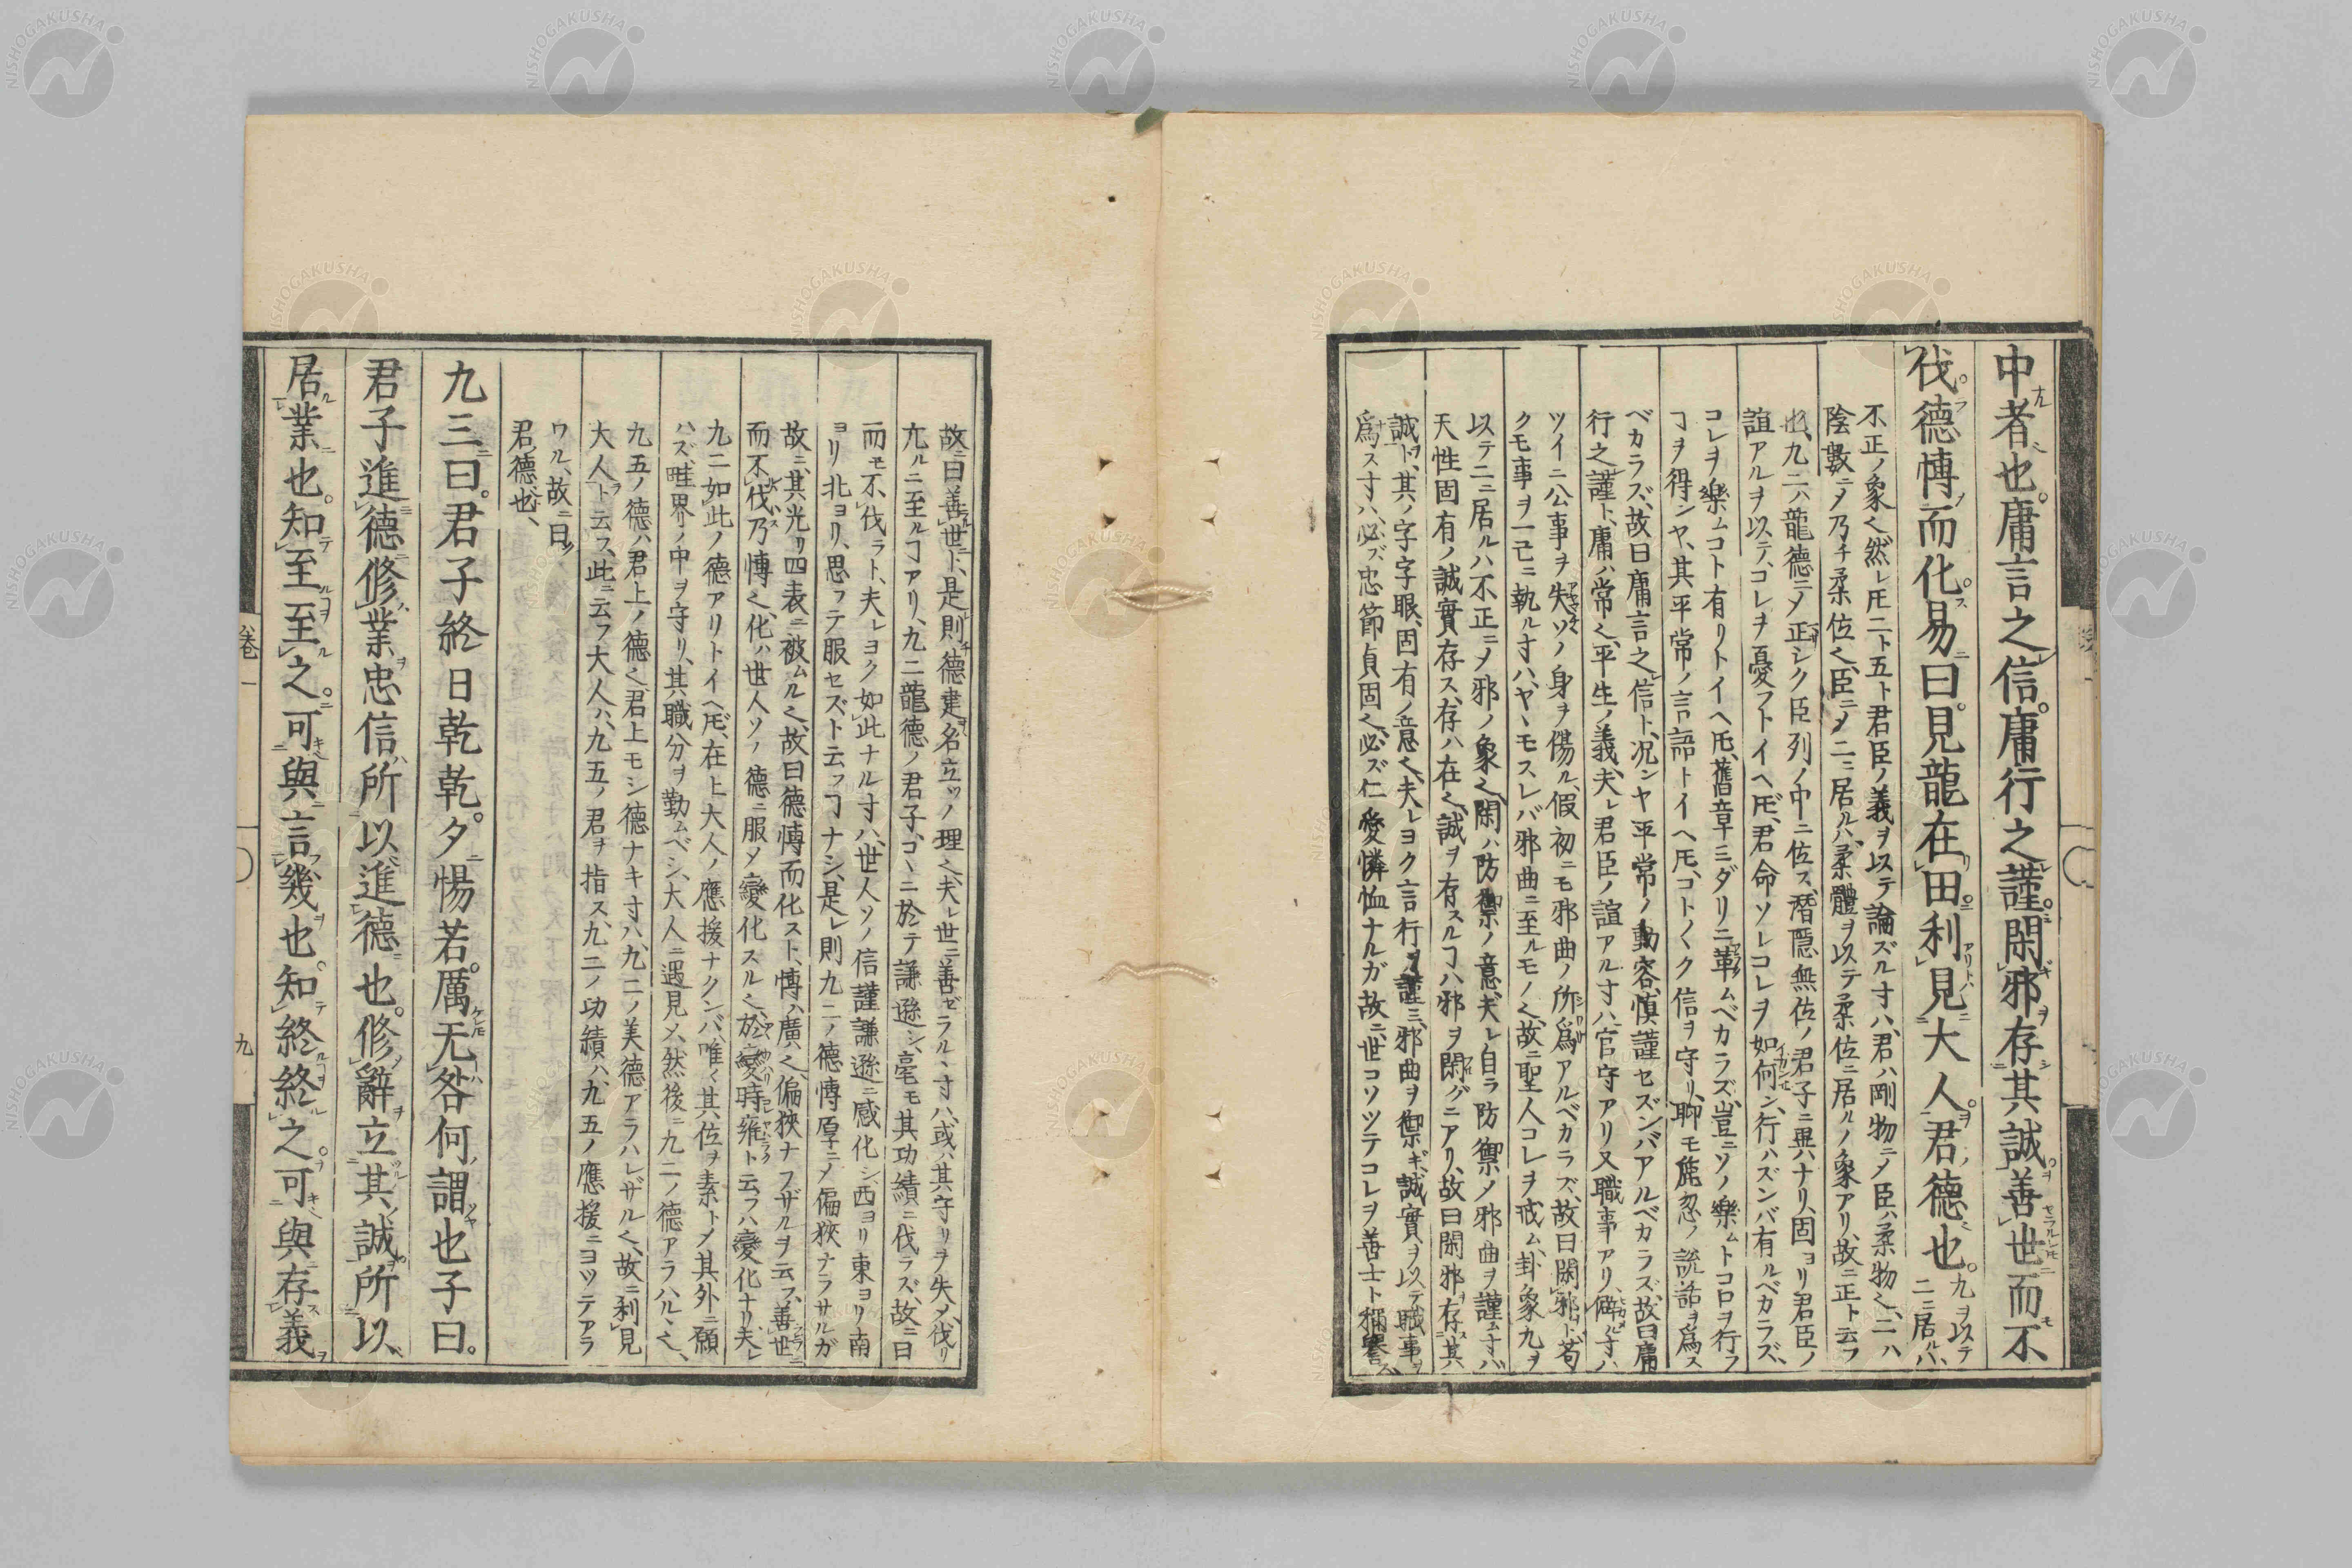 中者也。庸言之信。庸行之謹。閑邪存其誠善世而不
伐德博而化。易曰。見龍在田利見大人。君德也。九ヲ以テ
二ニ居ルハ、
不正ノ象ㄑ、然レ𪜈二ト五ト君臣ノ義ヲ以テ論ズル寸ハ、君ハ剛物ニメ臣ハ柔物ㄑ、二ハ
陰數ニメ乃チ柔位ㄑ、臣ニメ二ニ居ルハ、柔體ヲ以テ柔位ニ居ルノ象アリ、故ニ正ト云フ
也、九二ハ龍德ニメ正シク臣列ノ中ニ位ス、潛隱無位ノ君子ニ異ナリ、固ヨリ君臣ノ
誼アルヲ以テ、コレヲ憂フトイヘ𪜈、君命ソレコレヲ如何ン、行ハズンバ有ルベカラズ、
コレヲ樂ムコト有リトイヘ𪜈、舊章ミダリニ革ムベカラズ、豈ニソノ樂ムトコロヲ行フ
ヿヲ得ンヤ、其平常ノ言語トイヘ𪜈、コトノヽク信ヲ守リ、聊モ施忽ノ説話ヲ爲ス
ベカラズ、故曰庸言之信ト、况ンヤ平常ノ動容、愼謹セズンバアルベカラズ、故曰庸
行之謹ト、庸ハ常ㄑ、平生ノ義、夫レ君臣ノ誼アル寸ハ、官守アリ又職事アリ、倦ル寸ハ
ツイニ公事ヲ失ツノ身ヲ傷ル、假初ニモ邪曲ノ所爲アルベカラズ、故曰閑邪ト、苟
クモ事ヲ一モニ執ル寸ハ、ヤヽモスレバ邪曲ニ至ルモノㄑ、故ニ聖人コレヲ戒ム、卦象九ヲ
以テ二ニ居ルハ不正ニメ邪ノ象ㄑ、閑ハ防禦ノ意、夫レ自ラ防禦メ邪曲ヲ謹ム寸ハ
天性固有ノ誠實存ス、存ハ在ㄑ、誠ヲ有スルヿハ邪ヲ閑グニアリ、故曰閑邪存其
誠ト、其ノ字字眼、固有ノ意ㄑ、夫レヨク言行ヲ謹ミ、邪曲ヲ禦ギ、誠實ヲ以テ職事ヲ
爲ス寸ハ、必ズ忠節貞固ㄑ、必ズ仁愛憐恤ナルガ故ニ、世コソツテコレヲ善士ト稱譽ス、
故ニ曰善世ト、是則德建名立ツノ理ㄑ、夫レ世ニ善ゼラルヽ寸ハ、或ハ其守リヲ失メ、伐リ
亢ルニ至ルヿアリ、九二龍德ノ君子、コヽニ於テ謙遜シ、毫モ其功績ニ伐ラズ、故ニ曰
而モ不伐ラト、夫レヨク如此ナル寸ハ、世人ソノ信謹謙遜ニ感化シ、西ヨリ東ヨリ南
ヨリ北ヨリ、思フテ服セズト云フヿナシ、是レ則九二ノ德博厚ニメ偏狹ナラサルガ
故ニ、其光リ四表ニ被ムルㄑ、故曰德博而化スト、博ハ廣ㄑ、偏狹ナラザルヲ云フ、善世
而不伐乃博ㄑ、化ハ世人ソノ德ニ服メ變化スルㄑ、於變時雍ト云フハ變化ナリ、夫レ
九二如此ノ德アリトイヘ𪜈、在上大人ノ應援ナクンバ、唯ㄑ其位ヲ素トメ其外ニ願
ハズ、畦界リノ中ヲ守リ、其職分ヲ勤ムベシ、大人ニ遇見メ、然後ニ九二ノ德アラハルヽㄑ、
九五ノ德ハ君上ノ德ㄑ、君上モシ德ナキ寸ハ、九二ノ美德アラハレザルㄑ、故ニ利見
大人ト云フ、此ニ云フ大人ハ、九五ノ君ヲ指ス、九二ノ功績ハ、九五ノ應援ニヨツテアラ
ワル、故ニ曰
君德也、
九三曰。君子終日乾乾。夕惕若。厲无咎何謂也子曰。
君子進德修業忠信所以進德也。修辭立其誠所以
居業也。知至至之。可與言幾也。知終終之。可與存義
卷一
九